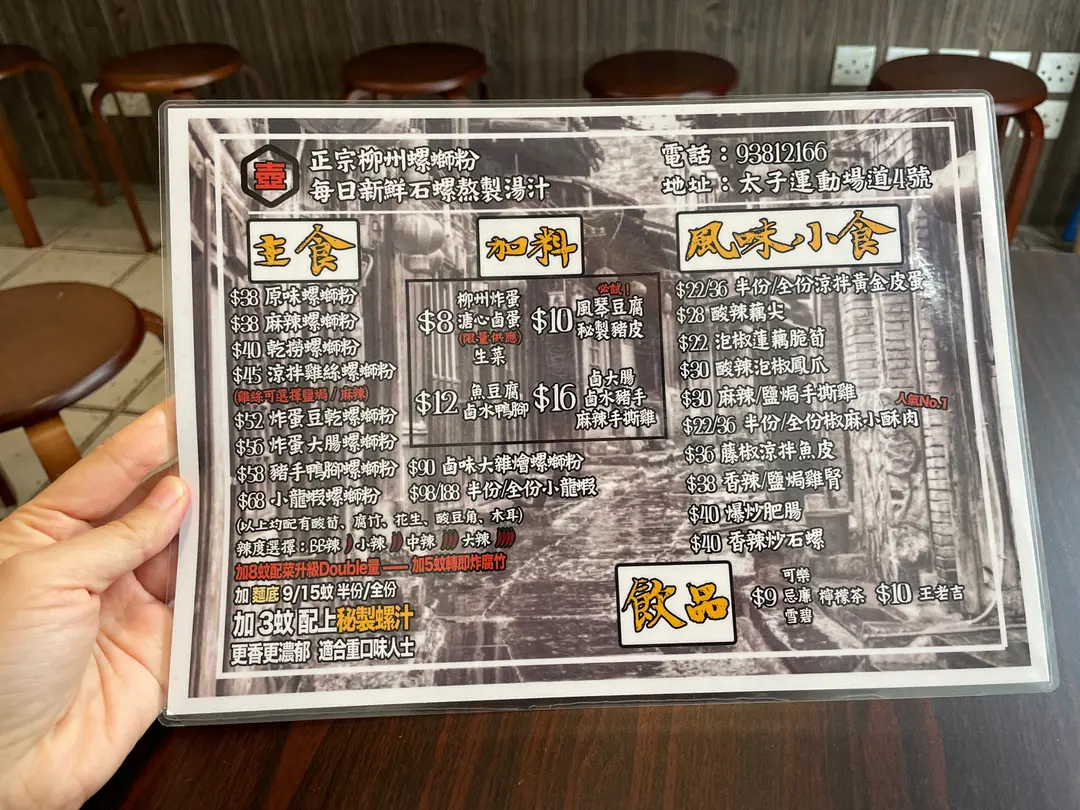 壺
正宗柳州螺螄粉
每日新鮮石螺熬製湯汁
電話：93812166
地址：太子運動場道4號
主食
$38 原味螺螄粉
$38 麻辣螺螄粉
$40 乾撈螺螄粉
$45 涼拌雞絲螺螄粉
(雞絲可選擇鹽焗/麻辣)
$52 炸蛋豆乾螺螄粉
$56 炸蛋大腸螺螄粉
$58 豬手鴨腳螺螄粉
$68 小龍蝦螺螄粉
$90 鹵味大雜燴螺螄粉
$98/188 半份/全份小龍蝦
(以上均配有酸筍、腐竹、花生、酸豆角、木耳)
辣度選擇：BB辣 小辣 中辣 大辣
加8蚊配菜升級Double量 —— 加5蚊轉即炸腐竹
加 麵底 9/15蚊 半份/全份
加 3蚊 配上秘製螺汁
更香更濃郁 適合重口味人士
加料
$8
柳州炸蛋
溏心鹵蛋
(限量供應)
生菜
$10
必試！
風琴豆腐
秘製豬皮
$12
魚豆腐
鹵水鴨腳
$16
鹵大腸
鹵水豬手
麻辣手撕雞
風味小食
$22/36 半份/全份涼拌黃金皮蛋
$28 酸辣藕尖
$22 泡椒蓮藕脆筍
$30 酸辣泡椒鳳爪
$30 麻辣/鹽焗手撕雞
人氣No.1
$22/36 半份/全份椒麻小酥肉
$36 藤椒涼拌魚皮
$38 香辣/鹽焗雞腎
$40 爆炒肥腸
$40 香辣炒石螺
飲品
$9
可樂
忌廉
雪碧
檸檬茶
$10 王老吉